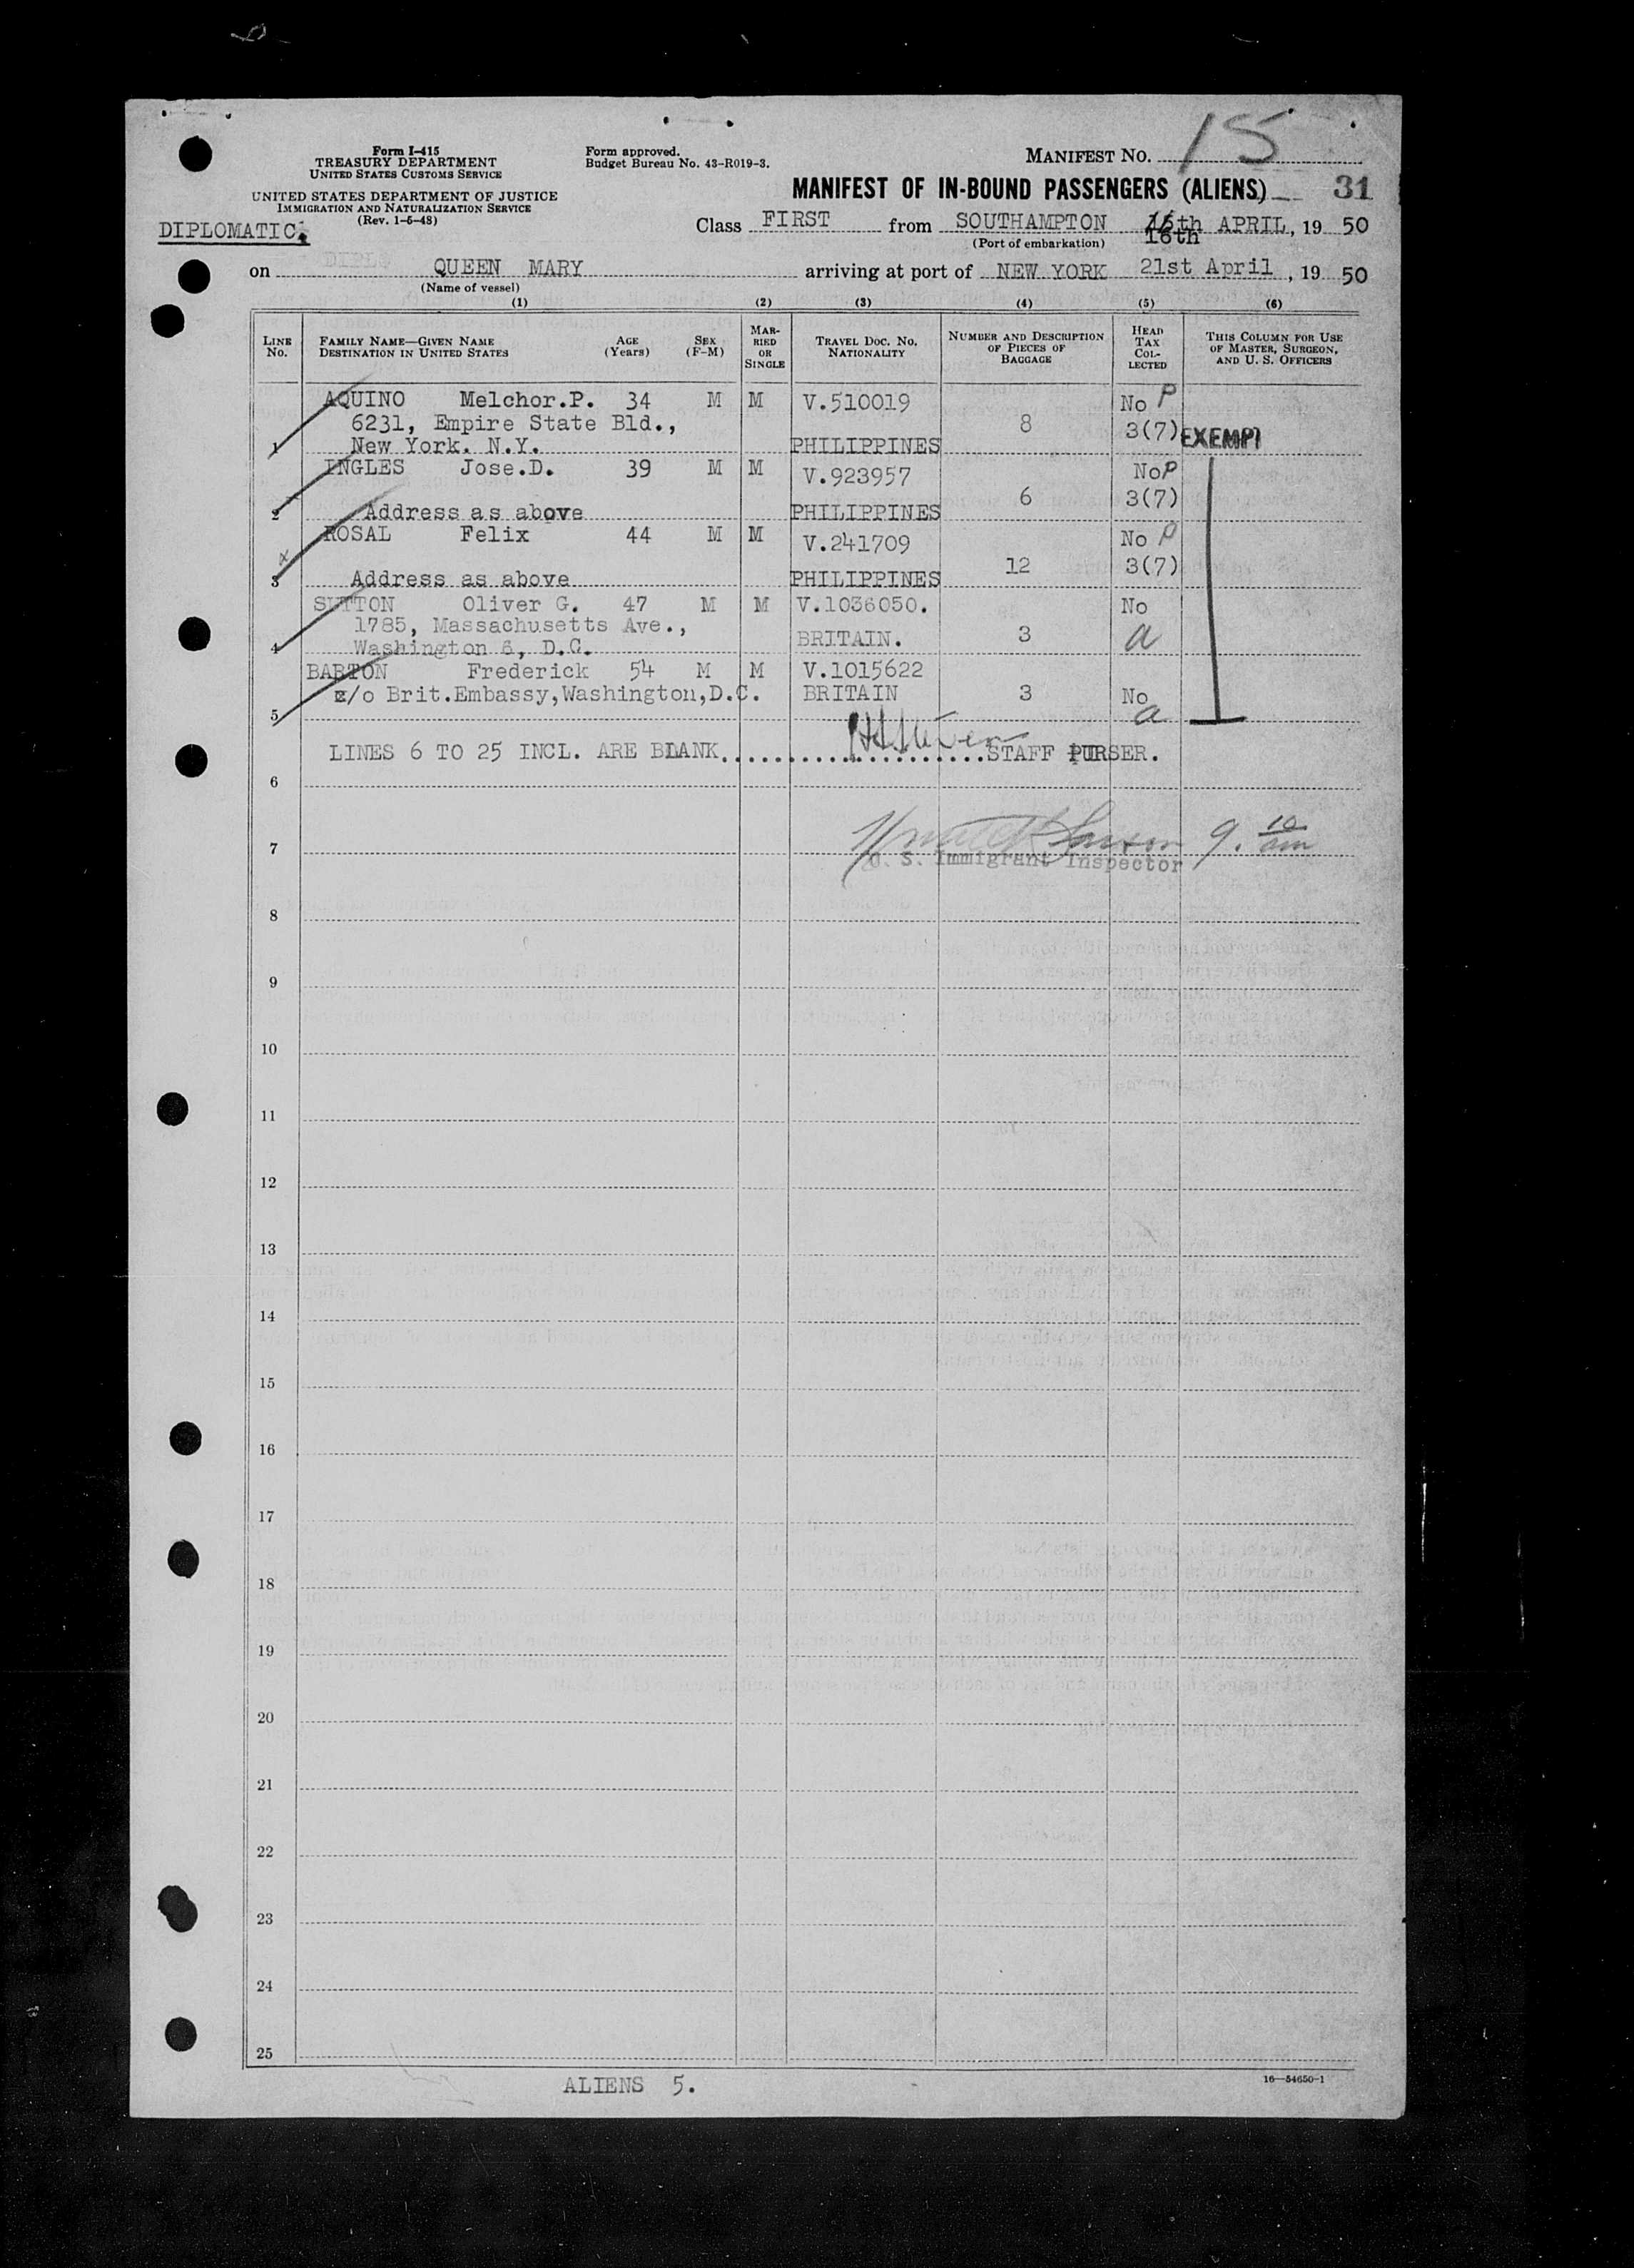 15
Form I-415
TREASURY DEPARTMENT
UNITED STATES CUSTOMS SERVICE
Form approved.
Budget Bureau No. 43-R019-3.
MANIFEST NO.
UNITED STATES DEPARTMENT OF JUSTICE
IMMIGRATION AND NATURALIZATION SERVICE
(Rev. 1-5-48)
MANIFEST OF IN-BOUND PASSENGERS (ALIENS) 31
DIPLOMATIC.
Class FIRST from SOUTHAMPTON 16th APRIL, 19 50
(Port of embarkation)
on QUEEN MARY arriving at port of NEW YORK 21st April, 19 50
(Name of vessel)
(1) (2) (3) (4) (5) (6)
LINE No. FAMILY NAME—GIVEN NAME DESTINATION IN UNITED STATES AGE (Years) SEX (F-M) MARRIED OR SINGLE TRAVEL DOC. NO. NATIONALITY NUMBER AND DESCRIPTION OF PIECES OF BAGGAGE HEAD TAX COLLECTED THIS COLUMN FOR USE OF MASTER, SURGEON, AND U. S. OFFICERS
AQUINO Melchor.P. 34 M M V.510019 No P
6231, Empire State Bld., 8 3(7) EXEMPT
1 New York. N.Y. PHILIPPINES
INGLES Jose.D. 39 M M V.923957 No P
6 3(7)
2 Address as above PHILIPPINES
ROSAL Felix 44 M M V.241709 No P
12 3(7)
3 Address as above PHILIPPINES
SUTTON Oliver G. 47 M M V.1036050. No
1785, Massachusetts Ave., 3 a
4 Washington 6, D.C. BRITAIN.
BARTON Frederick 54 M M V.1015622
c/o Brit.Embassy,Washington,D.C. BRITAIN 3 No
5 a
LINES 6 TO 25 INCL. ARE BLANK STAFF PURSER.
6
9. 10 am
7
U. S. Immigrant Inspector
8
9
10
11
12
13
14
15
16
17
18
19
20
21
22
23
24
25
ALIENS 5.
16—54650-1